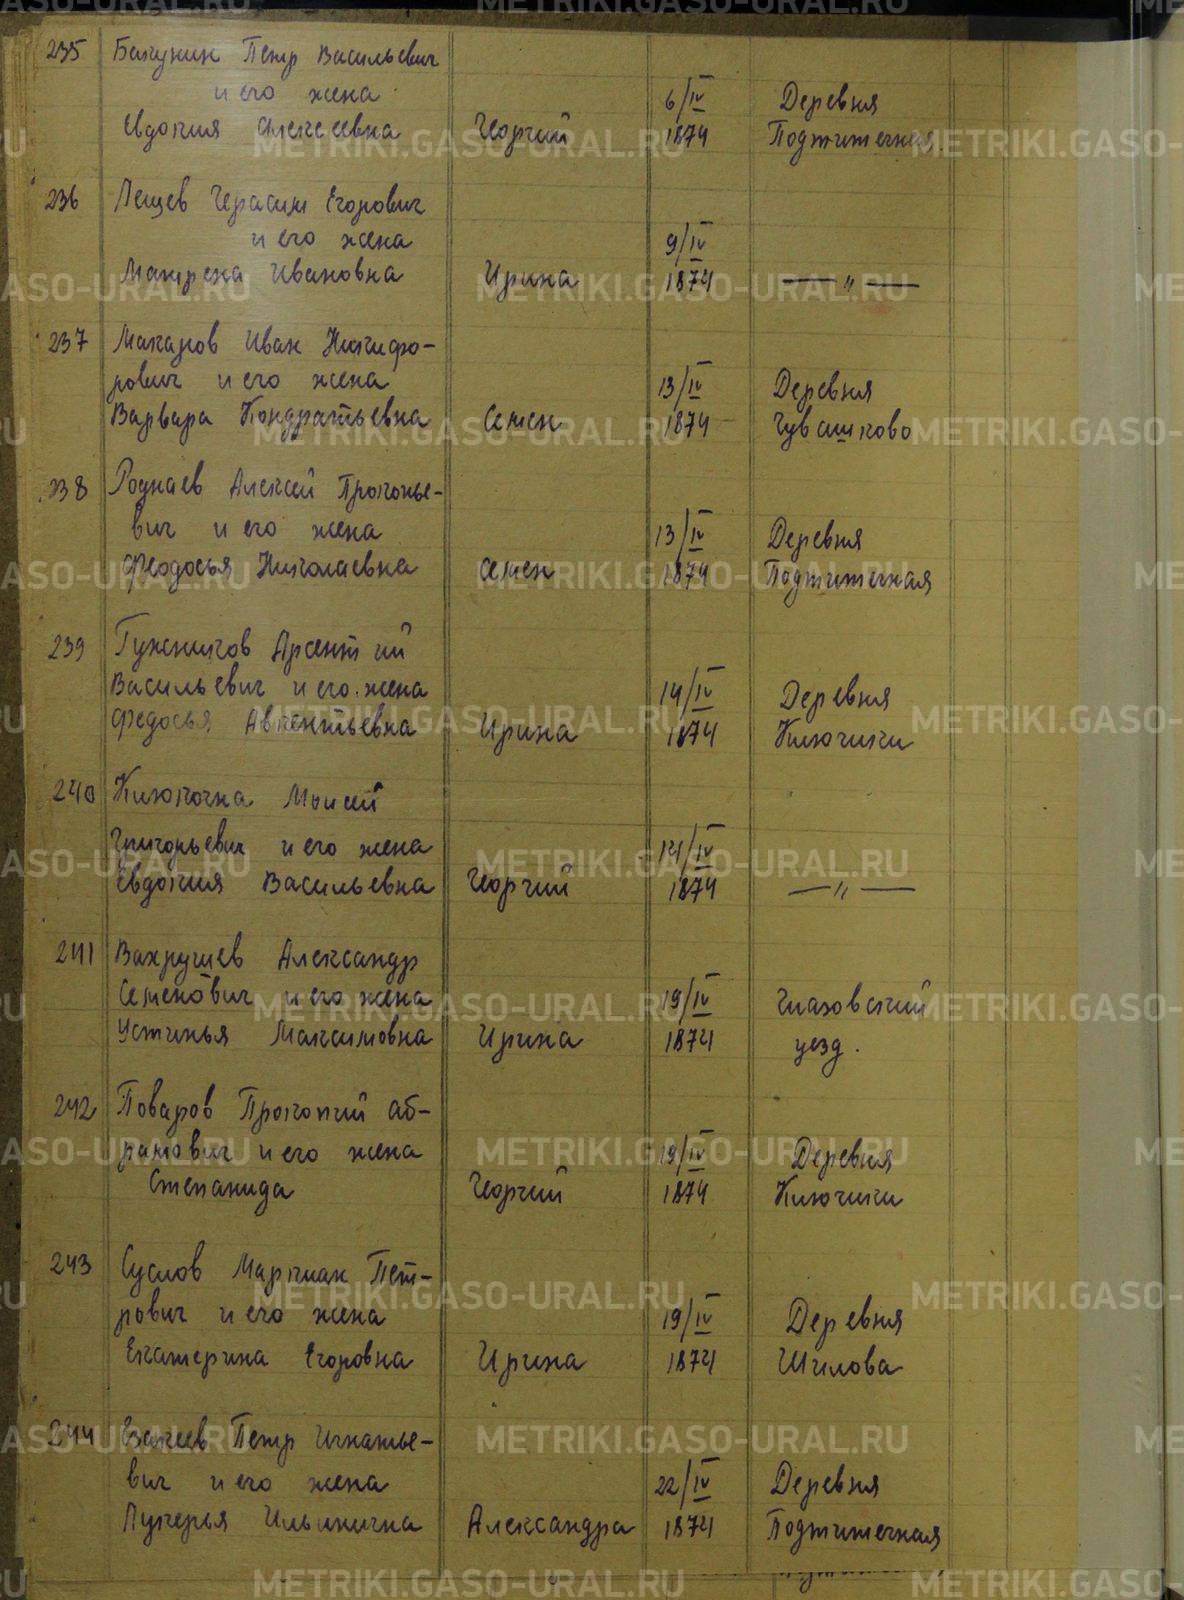 235 Бакунин Петр Васильевич
и его жена 6/IV Деревня
Евдокия Алексеевна Георгий 1874 Подтитечная
236 Лещев Герасим Егорович
и его жена 9/IV
Матрена Ивановна Ирина 1874 — " —
237 Макаров Иван Никифо-
рович и его жена 13/IV Деревня
Варвара Кондратьевна Семен 1874 Чувашково
238 Алексей Прокопье-
вич и его жена 13/IV Деревня
Феодосья Николаевна Семен 1874 Подтитечная
239 Гужников Арсентий
Васильевич и его жена 14/IV Деревня
Федосья Авкентьевна Ирина 1874 Ключики
240 Моисей
Григорьевич и его жена 14/IV
Евдокия Васильевна Георгий 1874 — " —
241 Вахрушев Александр
Семенович и его жена 19/IV Глазовский
Устинья Максимовна Ирина 1874 уезд.
242 Поваров Прокопий Аб-
рамович и его жена 19/IV Деревня
Степанида Георгий 1874 Ключики
243 Суслов Маркиан Пет-
рович и его жена 19/IV Деревня
Екатерина Егоровна Ирина 1874 Шилова
244 Петр Игнатье-
вич и его жена 22/IV Деревня
Лукерья Ильинична Александра 1874 Подтитечная
METRIKI.GASO-URAL.RU